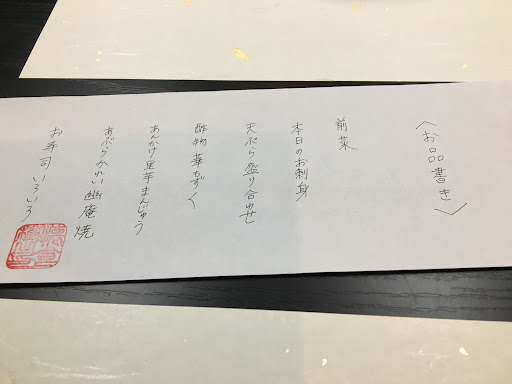 〈お品書き〉
前菜
本日のお刺身
天ぷら盛り合わせ
酢物 華もずく
あんかけ里芋まんじゅう
あぶらかれい幽庵焼
お寿司いろいろ